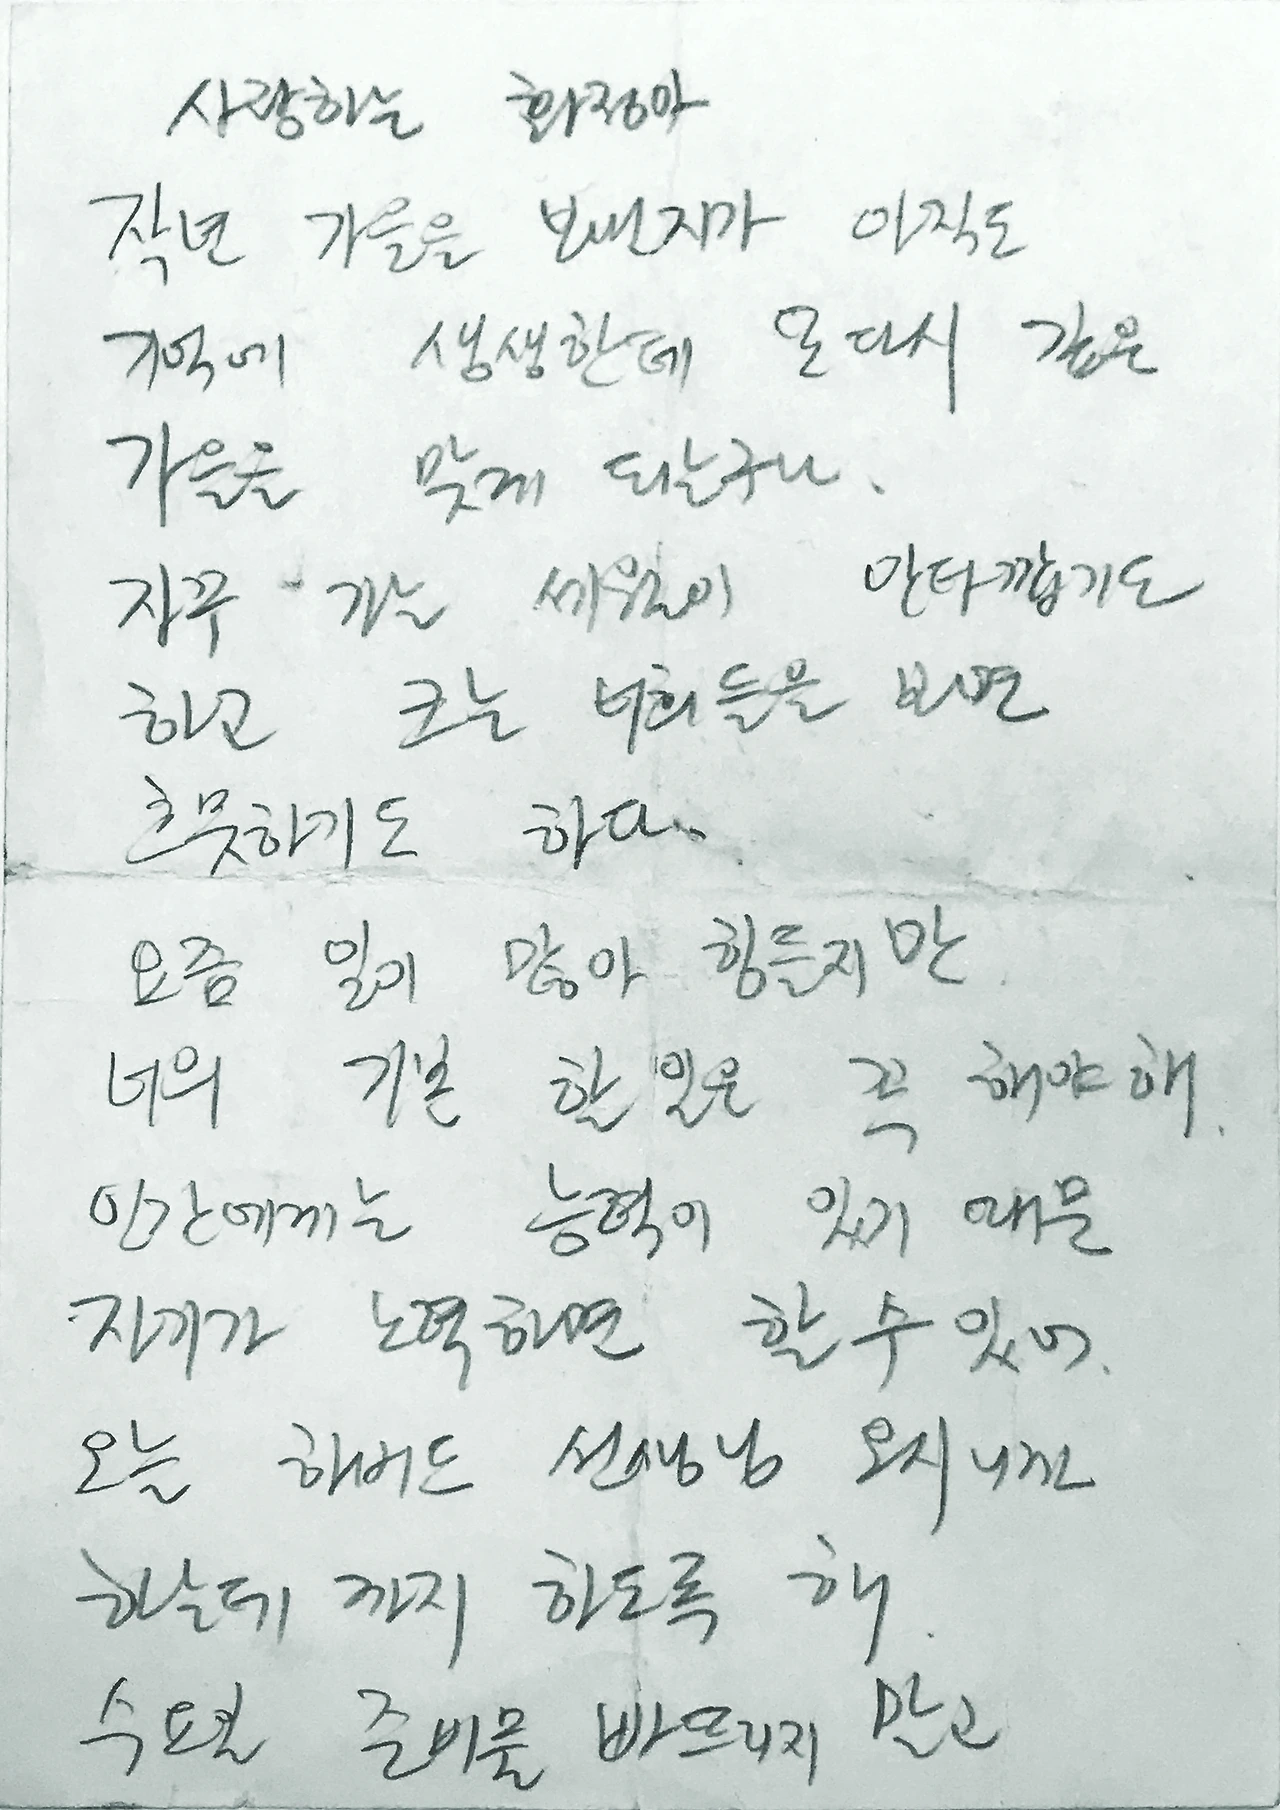 사랑하는 화정아
작년 가을을 보낸지가 아직도
기억에 생생한데 또다시 깊은
가을을 맞게 되는구나.
자꾸 가는 세월이 안타깝기도
하고 크는 너희들을 보면
흐뭇하기도 하다.
요즘 일이 많아 힘들지만
너의 기본 할 일은 꼭 해야해.
인간에게는 능력이 있기 때문
자기가 노력하면 할 수 있어.
오늘 선생님 오시니깐
하는데 까지 하도록 해.
수요일 준비물 빠뜨리지 말고